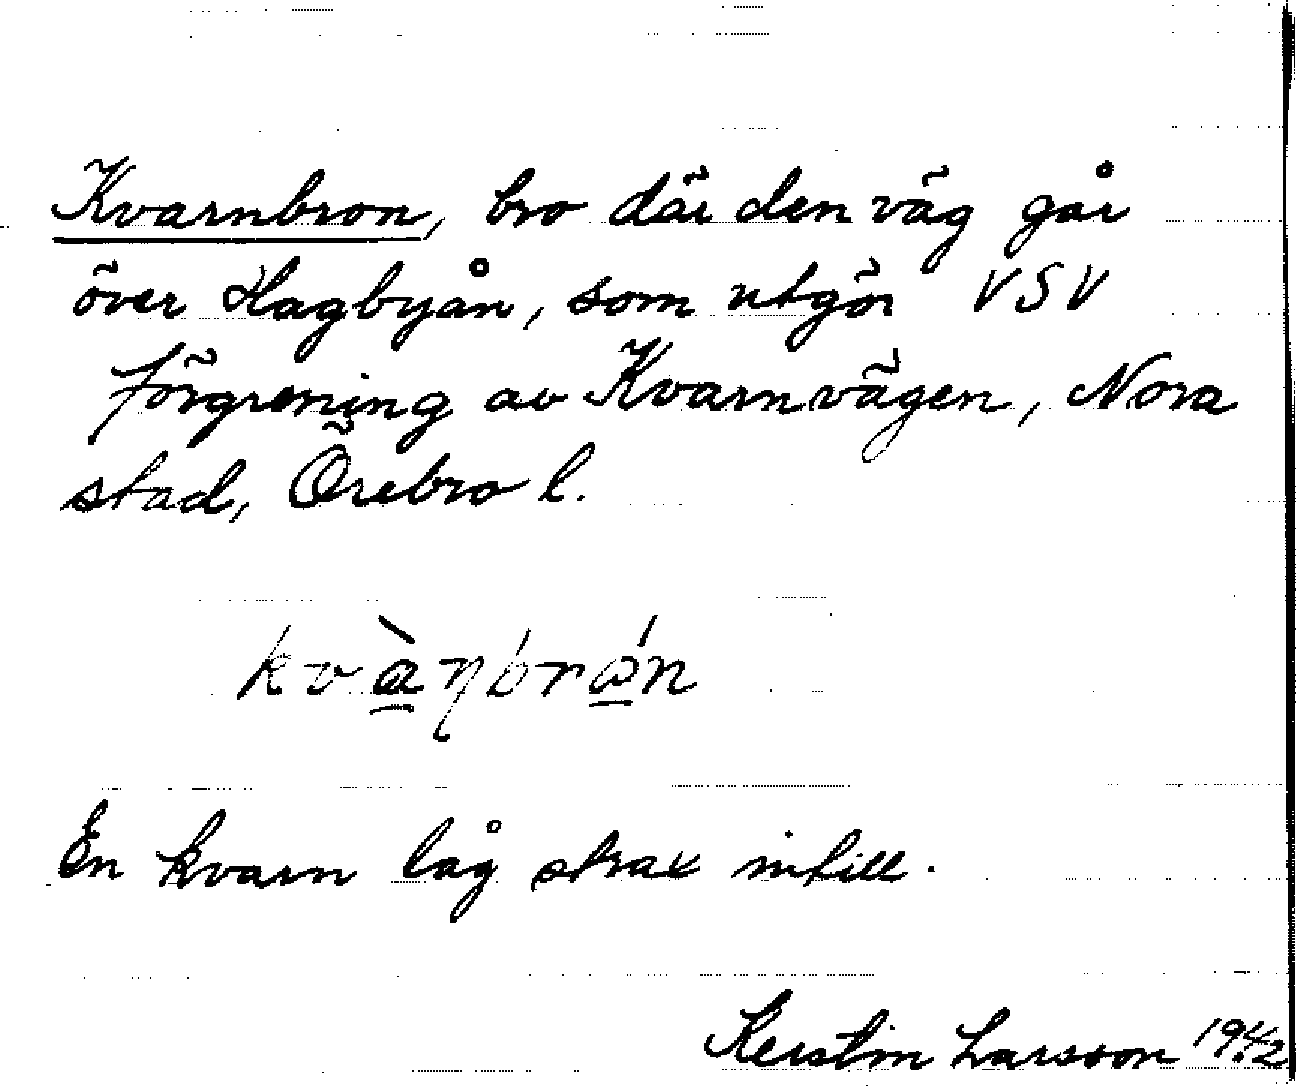 Kvarnbron, bro där den väg går
över Hagbyån, som utgör VSV
förgrening av Kvarnvägen, Nora
stad, Örebro l.
kvàn̨brǿn
En kvarn låg strax intill.
Kerstin Larsson 1942